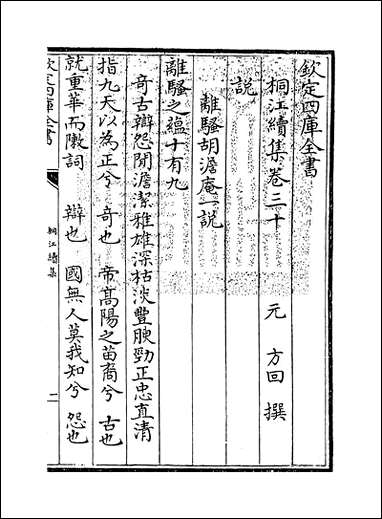 欽定四庫全書
桐江續集卷三十
元 方回 撰
說
離騷胡澹庵一說
離騷之蘊十有九
奇古辯怨閒澹潔雅雄深枯淡豐腴勁正忠直清
指九天以為正兮 奇也 帝髙陽之苗裔兮 古也
就重華而敶詞 辯也 國無人莫我知兮 怨也
欽定四庫全書
桐江續集